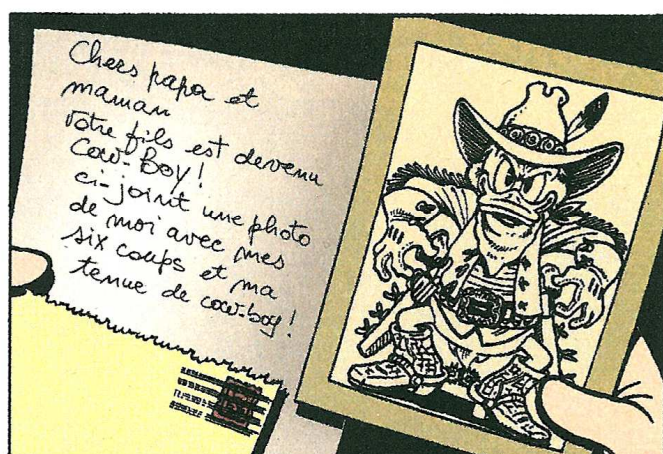 Chers papa et
maman
votre fils est devenu
Cow-Boy!
ci-joint une photo
de moi avec mes
six coups et ma
tenue de cow-boy!